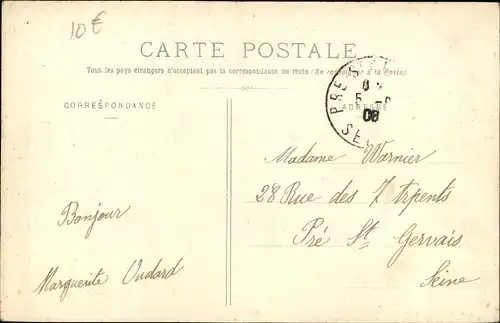 10€
CARTE POSTALE
Tous les pays étrangers n'acceptent pas la correspondance au recto (Se renseigner à la Poste)
CORRESPONDANCE
ADRESSE
PRE
5
08
SE
Madame Warnier
28 Rue des 7 Arpents
Pré St Gervais
Seine
Bonjour
Marguerite Oudard